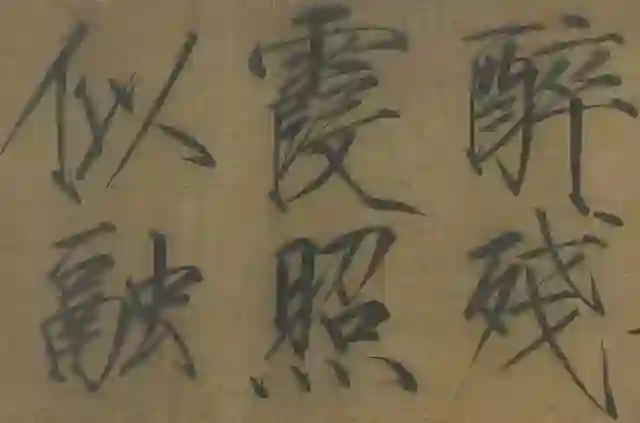 醉殘
霞照
似融